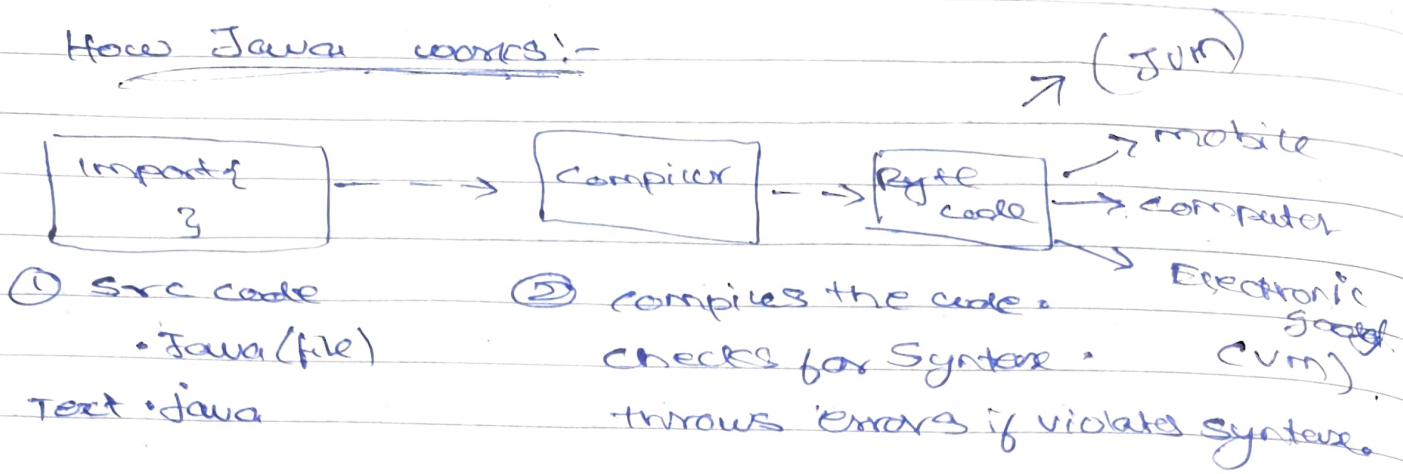 How Java works:-
(JVM)
Import {
}
Compiler
Byte
code
mobile
computer
Electronic
goods.
(VM)
① src code
.Java (file)
Text.java
② compiles the code.
checks for Syntax.
throws errors if violates syntax.